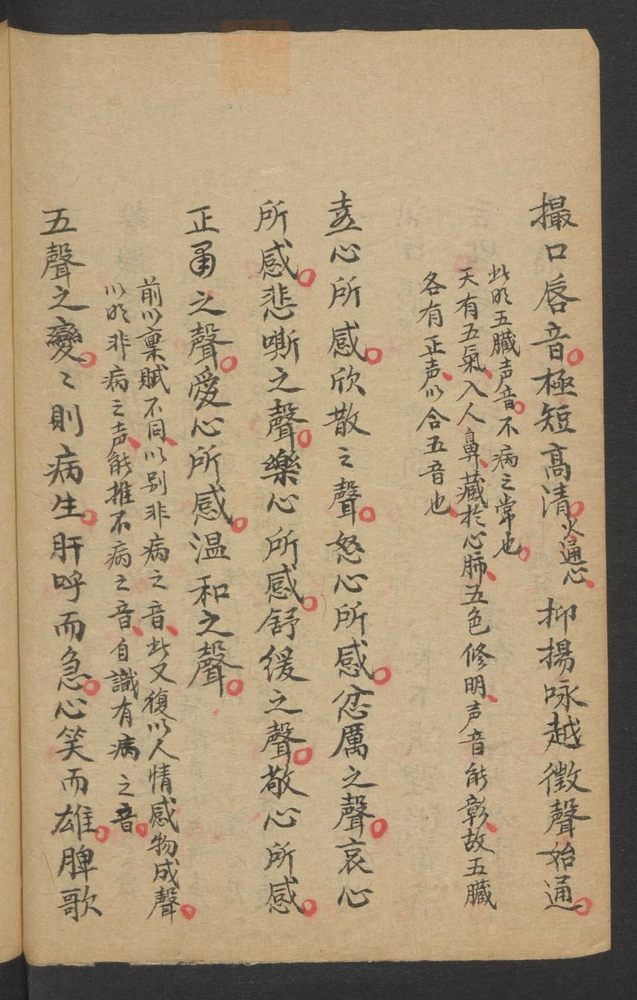 撮口唇音極短高清火通心抑揚咏越徵聲始通
此明五臟声音不病之常也
天有五氣入人鼻藏於心肺五色修明声音能彰故五臟
各有正声以合五音也
喜心所感欣散之聲怒心所感忿厲之聲哀心
所感悲嘶之聲樂心所感舒缓之聲敬心所感
正勇之聲愛心所感温和之聲
前以稟賦不同以别非病之音此又復以人情感物成聲
以明非病之声能推不病之音自識有病之音
五聲之變〻則病生肝呼而急心笑而雄脾歌